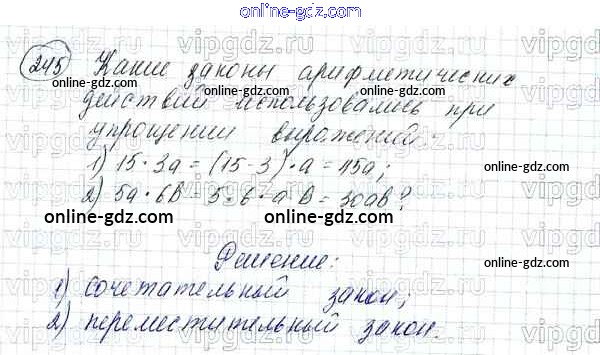 online-gdz.com
245 Какие законы арифметических
действий использовались при
упрощении выражений:
1) 15 · 3a = (15 · 3) · a = 45a;
2) 5a · 6b = 5 · 6 · a b = 30ab?
Решение:
1) сочетательный закон;
2) переместительный закон.
online-gdz.com
online-gdz.com
online-gdz.com
online-gdz.com
online-gdz.com
online-gdz.com
online-gdz.com
vipgdz.ru